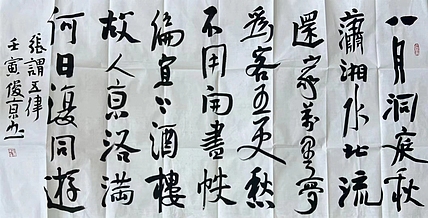 八月洞庭秋
瀟湘水北流
還家萬里夢
為客五更愁
不用開書帙
偏宜上酒樓
故人京洛滿
何日復同遊
張謂五律
壬寅